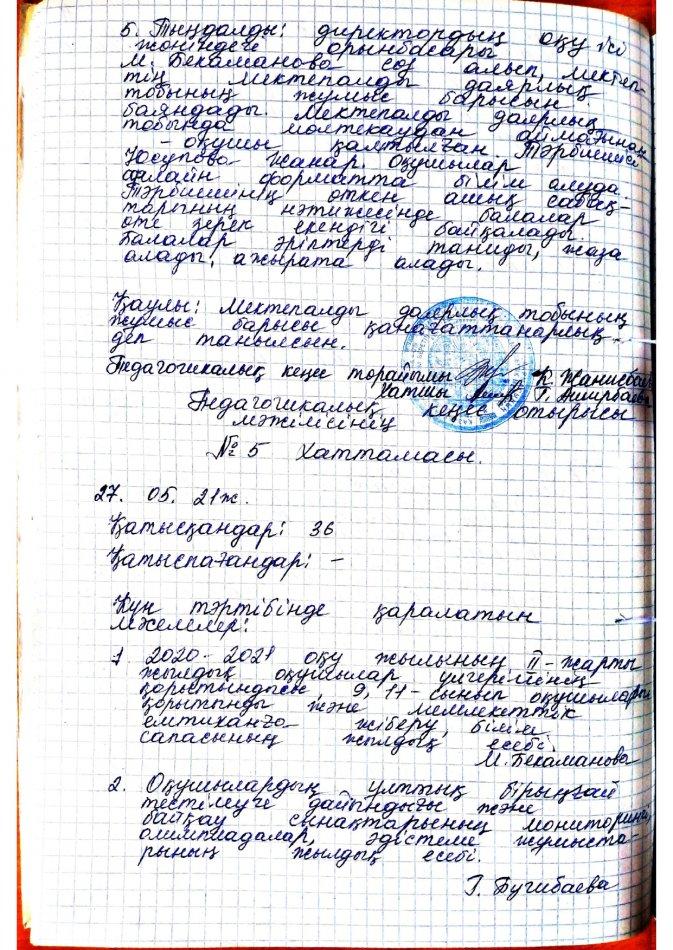 5. Тыңдалды: директордың оқу ісі
жөніндегі орынбасары
М. Бекаманова сөз алып, мектеп-
тің мектепалды даярлық
тобының жұмыс барысын
баяндады. Мектепалды даярлық
тобында шолтекаудан аймағынан
- оқушы қамтылған Тәрбиешісі
Юсупова Жанар. Оқушылар
онлайн форматта білім алуда.
Тәрбиешінің өткен ашық сабақ-
тарының нәтижесінде балалар
өте зерек екендігі байқалады.
Балалар әріптерді таниды, жаза
алады, ажырата алады.
Қаулы: Мектепалды даярлық тобының
жұмыс барысы қанағаттанарлық
деп танылсын.
Педагогикалық кеңес төрайымы Қ. Жанисбаи
Хатшы Г. Аширбаева
Педагогикалық кеңес отырысы
мәжілісінің
№ 5 Хаттамасы.
27. 05. 21ж.
Қатысқандар: 36
Қатыспағандар: -
Күн тәртібінде қаралатын
мәселелер:
1. 2020-2021 оқу жылының II-жарты
жылдық оқушылар үлгерімінің
қорытындысы, 9, 11-сынып оқушыларын
қорытынды және мемлекеттік
емтиханға жіберу, білім
сапасының жылдық есебі.
М. Бекаманова
2. Оқушылардың ұлттық бірыңғай
тестілеуге дайындығы және
байқау сынақтарының мониторингі,
олимпиадалар, әдістеме жұмыста-
рының жылдық есебі.
Г. Бугибаева